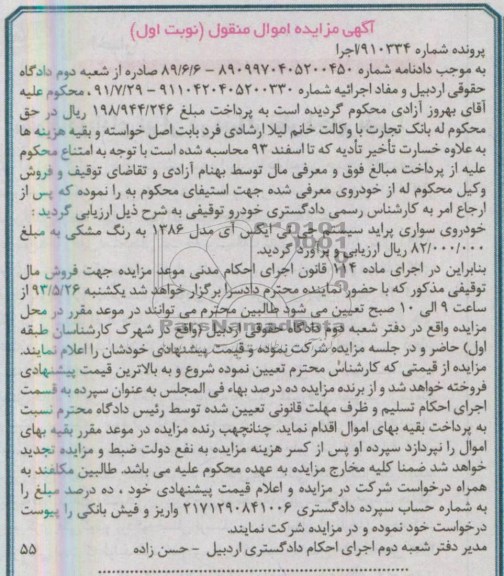 آگهی مزایده اموال منقول (نوبت اول)
پرونده شماره ۹۱۰۳۳۴/اجرا
به موجب دادنامه شماره ۸۹۰۹۹۷۰۴۰۵۲۰۰۴۵۰ – ۸۹/۶/۶ صادره از شعبه دوم دادگاه
حقوقی اردبیل و مفاد اجرائیه شماره ۹۱۱۰۴۲۰۴۰۵۲۰۰۳۳۰ – ۹۱/۷/۲۹ ، محکوم علیه
آقای بهروز آزادی محکوم گردیده است به پرداخت مبلغ ۱۹۸/۹۴۴/۲۴۶ ریال در حق
محکوم له بانک تجارت با وکالت خانم لیلا ارشادی فرد بابت اصل خواسته و بقیه هزینه ها
به علاوه خسارت تأخیر تأدیه که تا اسفند ۹۳ محاسبه شده است با توجه به امتناع محکوم
علیه از پرداخت مبالغ فوق و معرفی مال توسط بهنام آزادی و تقاضای توقیف و فروش
وکیل محکوم له از خودروی معرفی شده جهت استیفای محکوم به را نموده که پس از
ارجاع امر به کارشناس رسمی دادگستری خودرو توقیفی به شرح ذیل ارزیابی گردید :
خودروی سواری پراید سیستم جی تی ایکس آی مدل ۱۳۸۶ به رنگ مشکی به مبلغ
۸۲/۰۰۰/۰۰۰ ریال ارزیابی و برآورد گردید.
بنابراین در اجرای ماده ۱۱۴ قانون اجرای احکام مدنی موعد مزایده جهت فروش مال
توقیفی مذکور که با حضور نماینده محترم دادسرا برگزار خواهد شد یکشنبه ۹۳/۵/۲۶ از
ساعت ۹ الی ۱۰ صبح تعیین می شود طالبین محترم می توانند در موعد مقرر در محل
مزایده واقع در دفتر شعبه دوم دادگاه حقوقی اردبیل (واقع در شهرک کارشناسان طبقه
اول) حاضر و در جلسه مزایده شرکت نموده و قیمت پیشنهادی خودشان را اعلام نمایند.
مزایده از قیمتی که کارشناش محترم تعیین نموده شروع و به بالاترین قیمت پیشنهادی
فروخته خواهد شد و از برنده مزایده ده درصد بهاء فی المجلس به عنوان سپرده به قسمت
اجرای احکام تسلیم و ظرف مهلت قانونی تعیین شده توسط رئیس دادگاه محترم نسبت
به پرداخت بقیه بهای اموال اقدام نماید. چنانچهب رنده مزایده در موعد مقرر بقیه بهای
اموال را نپردازد سپرده او پس از کسر هزینه مزایده به نفع دولت ضبط و مزایده تجدید
خواهد شد ضمنا کلیه مخارج مزایده به عهده محکوم علیه می باشد. طالبین مکلفند به
همراه درخواست شرکت در مزایده و اعلام قیمت پیشنهادی خود ، ده درصد مبلغ را
به شماره حساب سپرده دادگستری ۲۱۷۱۲۹۰۸۴۱۰۰۶ واریز و فیش بانکی را پیوست
درخواست خود نموده و در مزایده شرکت نمایند.
مدیر دفتر شعبه دوم اجرای احکام دادگستری اردبیل – حسن زاده ۵۵